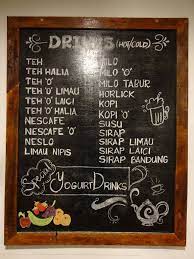 DRINKS (HOT/COLD)
TEH
TEH HALIA
TEH 'O'
TEH 'O' LIMAU
TEH 'O' LAICI
TEH 'O' HALIA
NESCAFE
NESCAFE 'O'
NESLO
LIMAU NIPIS
MILO
MILO 'O'
MILO TABUR
HORLICK
KOPI
KOPI 'O'
SUSU
SIRAP
SIRAP LIMAU
SIRAP LAICI
SIRAP BANDUNG
Special
YOGURT DRINKS